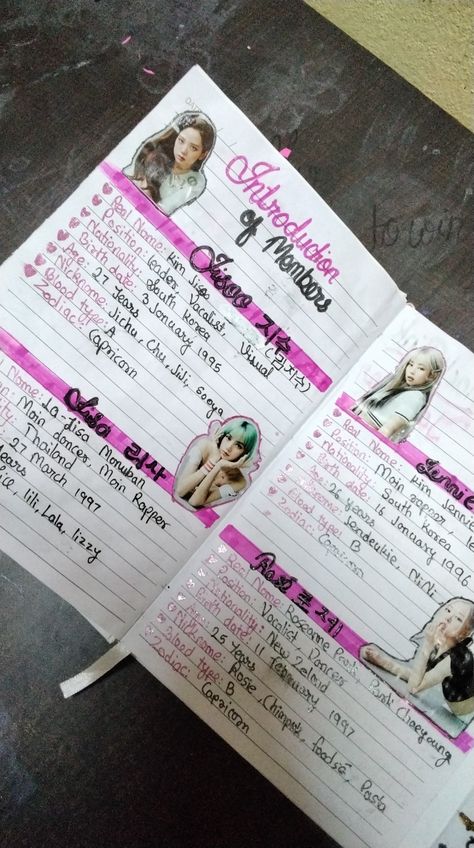 Introduction
of Members
Jisoo 지수 (김지수)
Real Name: Kim Jisoo
Position: Leader, Vocalist, Visual
Nationality: South Korea
Birth date: 3 January 1995
Age: 27 Years
Nickname: Jichu, Chu, Jiji, Sooya
Blood type: A
Zodiac: Capricorn
Lisa 리사
Name: La-Lisa Monuban
Main dancer, Main Rapper
Thailand
27 March 1997
lili, Lala, lizzy
Jennie
Real Name: Kim Jennie
Position: Main rapper,
Nationality: South Korea
Birth date: 16 January 1996
Age: 26 Years
Nickname: Jendeukie, NiNi
Blood type: B
Zodiac: Capricorn
Rosé 로제
Real Name: Roseanne Park, Park Chaeyoung
Position: Vocalist, Dancer
Nationality: New Zeland
Birth date: 11 February 1997
Age: 25 Years
Nickname: Rosie, Chimpk, foodsé, Pasta
Blood type: B
Zodiac: Capricorn